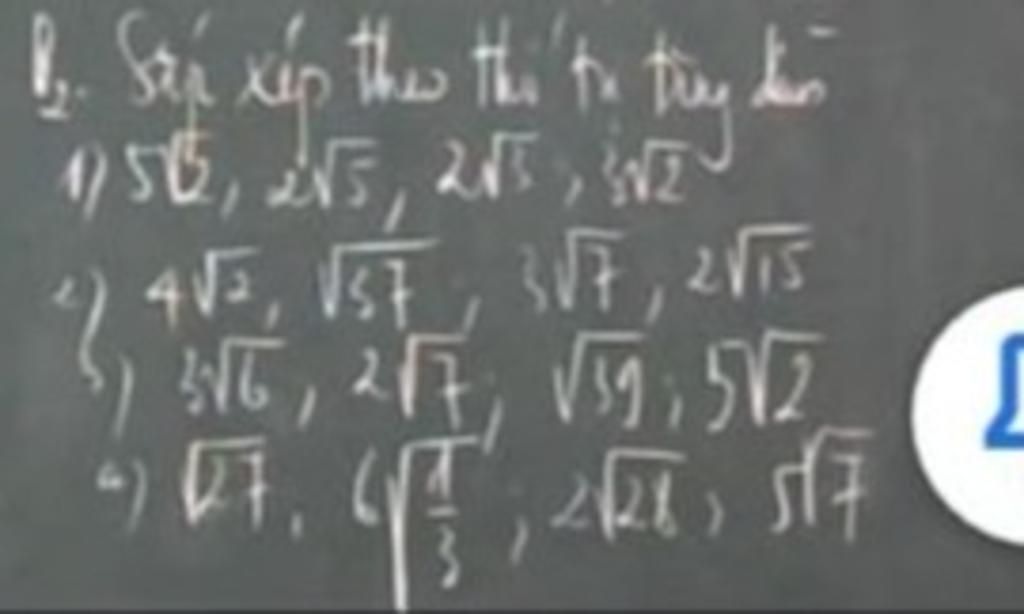 B2. Sắp xếp theo thứ tự tăng dần
1) 5√2, 2√5, 2√3, 3√2
2) 4√2, √37, 3√7, 2√15
3) 3√6, 2√7, √39; 5√2
4) √27, 6√(1/3); 2√28; 5√7